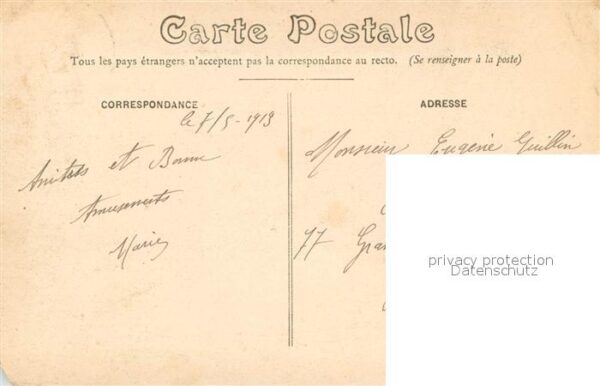 Carte Postale
Tous les pays étrangers n'acceptent pas la correspondance au recto. (Se renseigner à la poste)
CORRESPONDANCE
ADRESSE
le 7/5-1913
Amitiés et Bonne
Amusements
Marie
Monsieur Eugène Guillin
77 Gran
privacy protection
Datenschutz